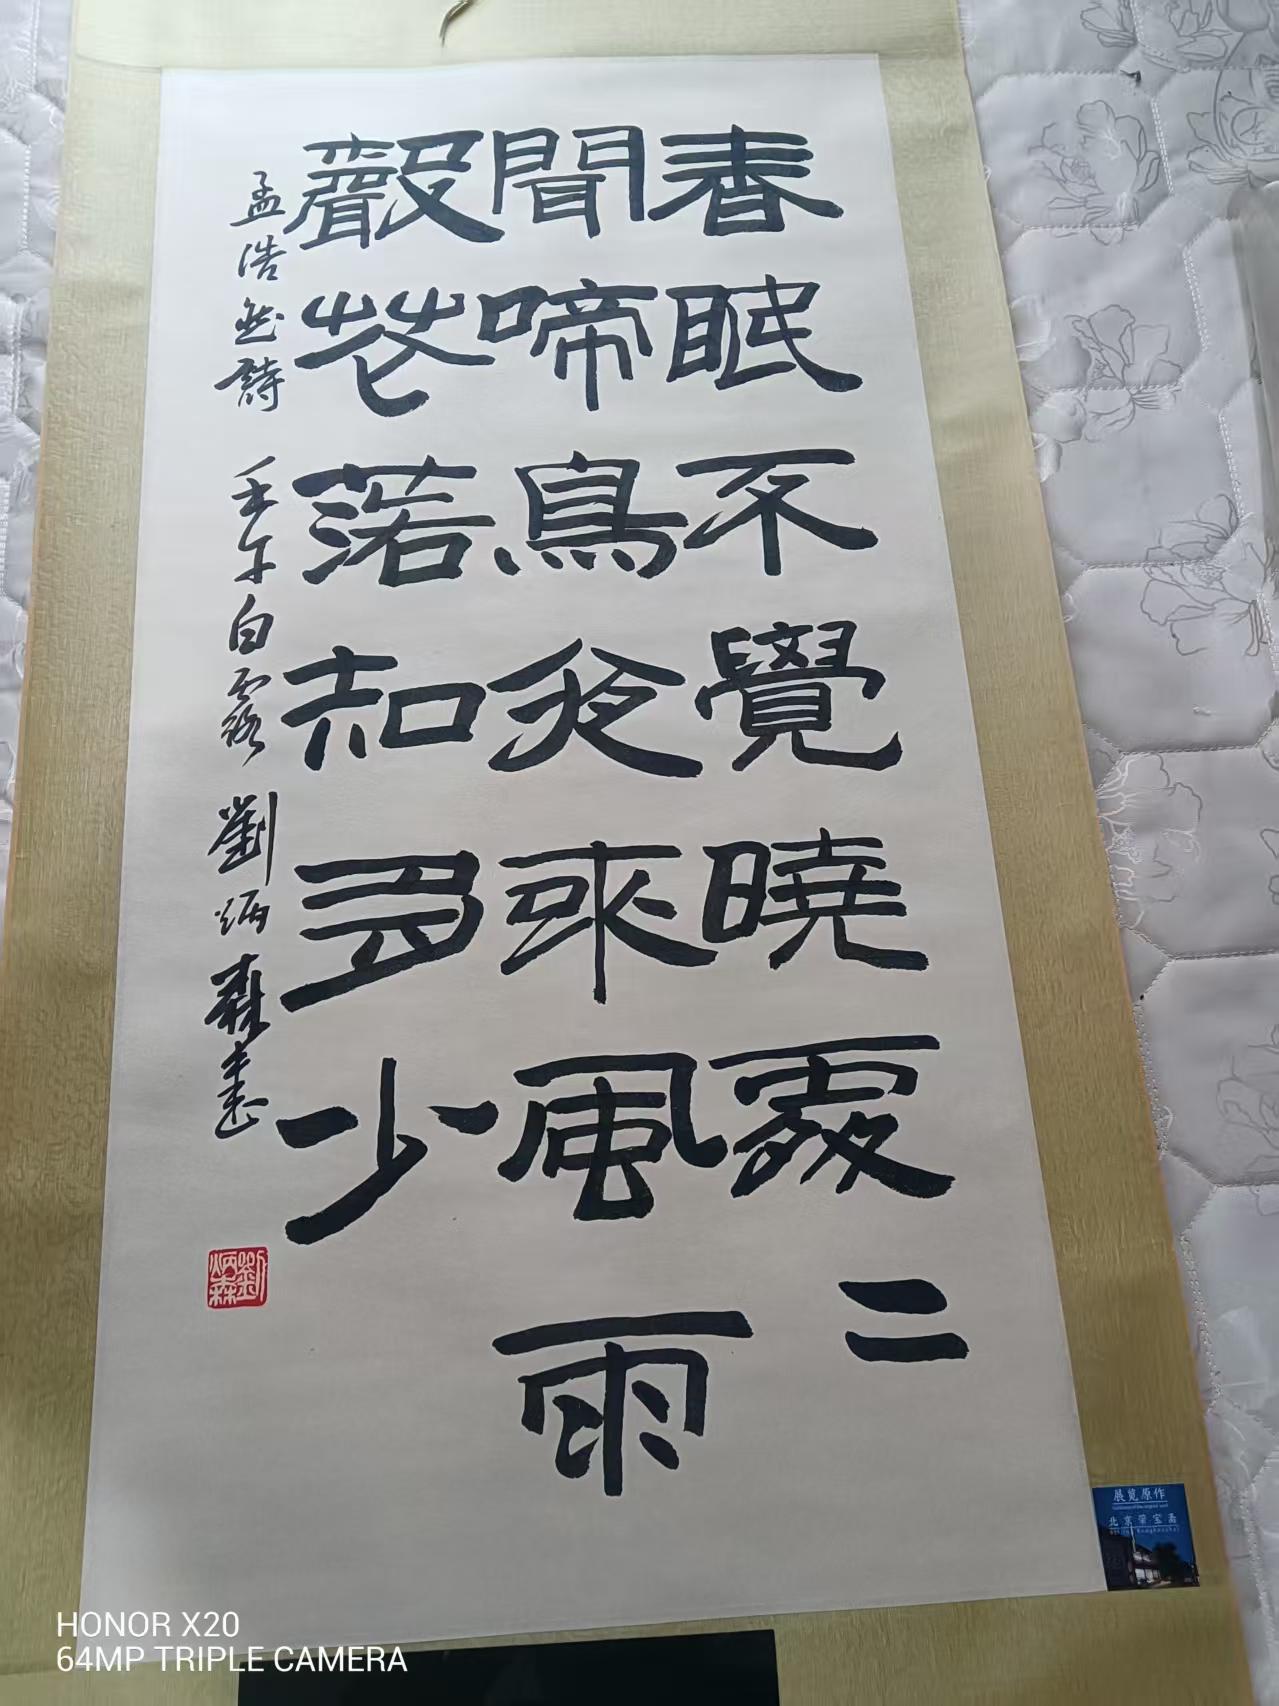 春眠不覺曉處二
聞啼鳥夜來風雨
聲花落知多少
孟浩然詩 壬午白露 劉炳森書
劉炳森
展览原作
北京荣宝斋
HONOR X20
64MP TRIPLE CAMERA